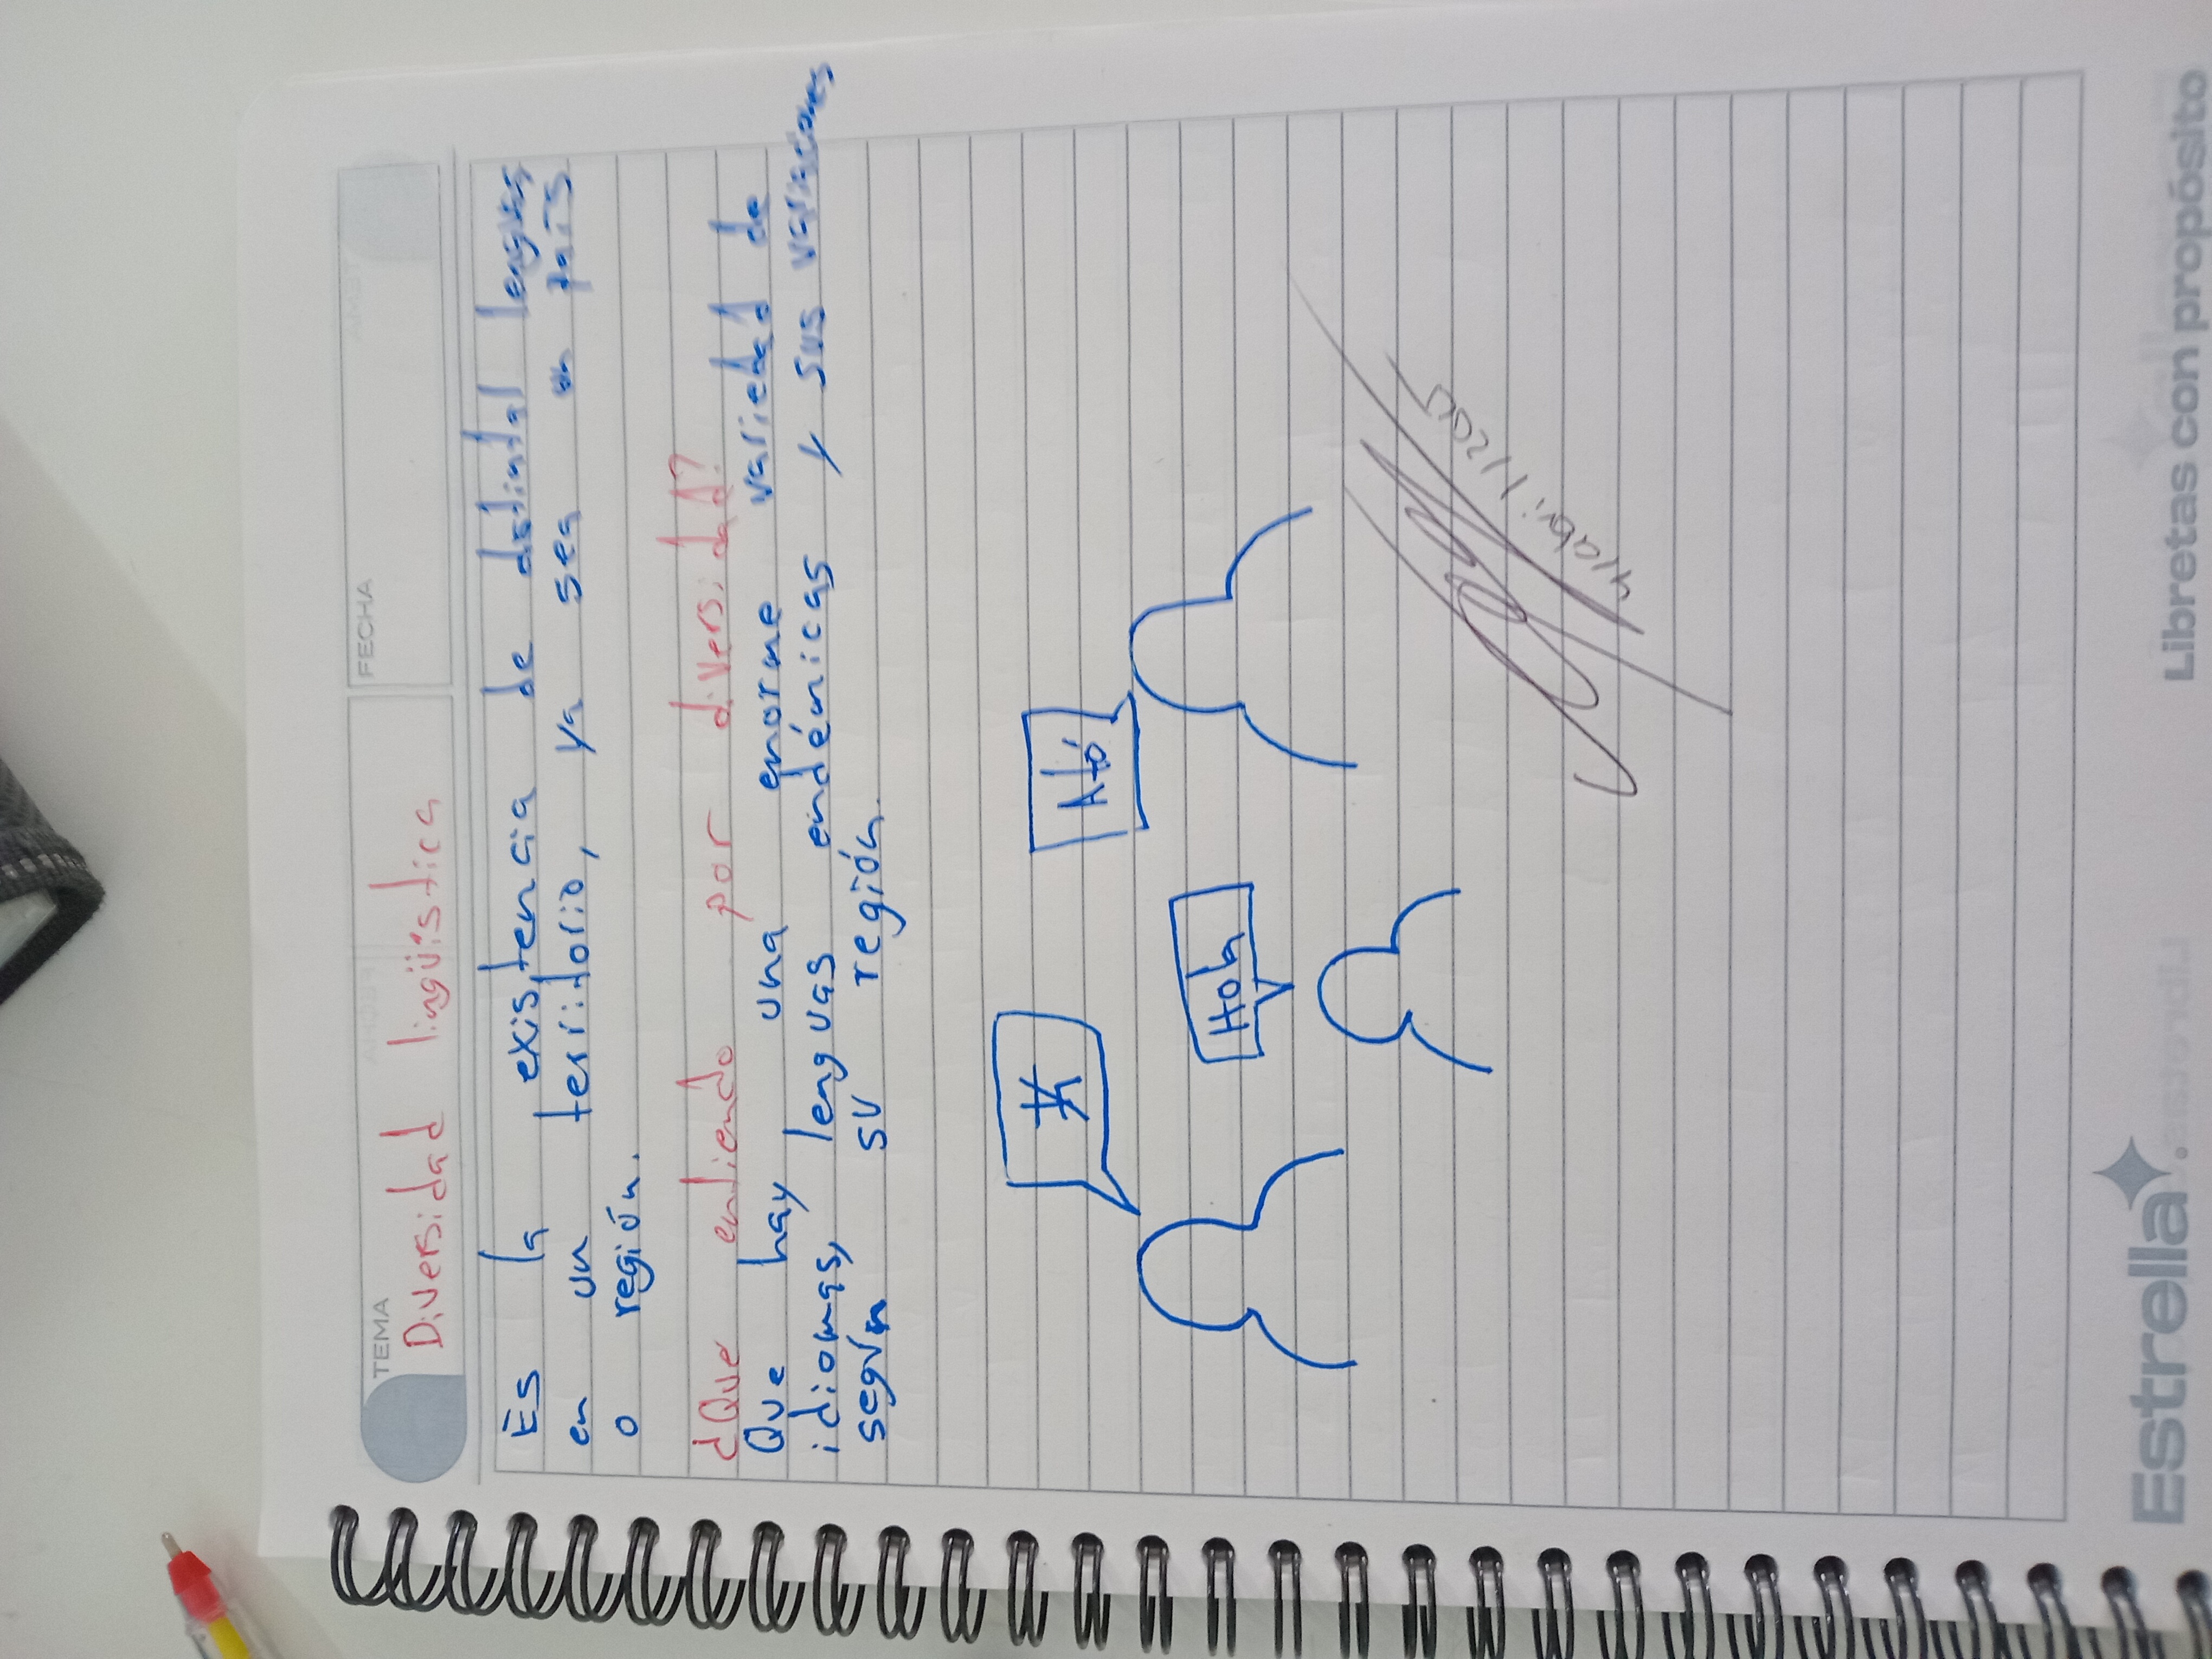 TEMA
FECHA
Diversidad lingüística
Es la existencia de distintal lenguas
en un territorio, ya sea un país
o región.
¿Que entiendo por diversidad?
Que hay una enorme variedad de
idiomas, lenguas endémicas y sus variaciones
según su región.
Aló
Hola
4/abril/2025
Estrella
Libretas con propósito